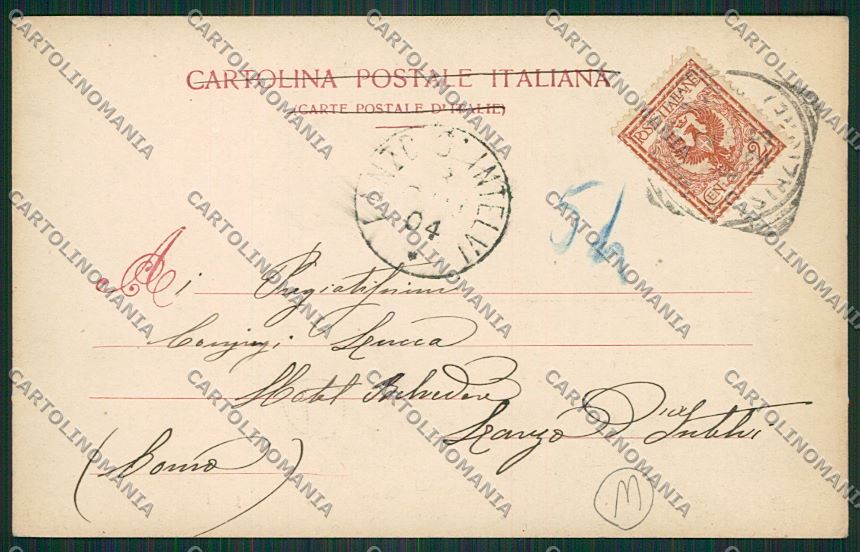 CARTOLINA POSTALE ITALIANA
(CARTE POSTALE D'ITALIE)
POSTE ITALIANE
CEN. 2
LANZO D'INTELVI
04
Ai Pregiatissimi
Coniugi
Hotel Belvedere
Lanzo d'Intelvi
(Como)
M
CARTOLINOMANIA